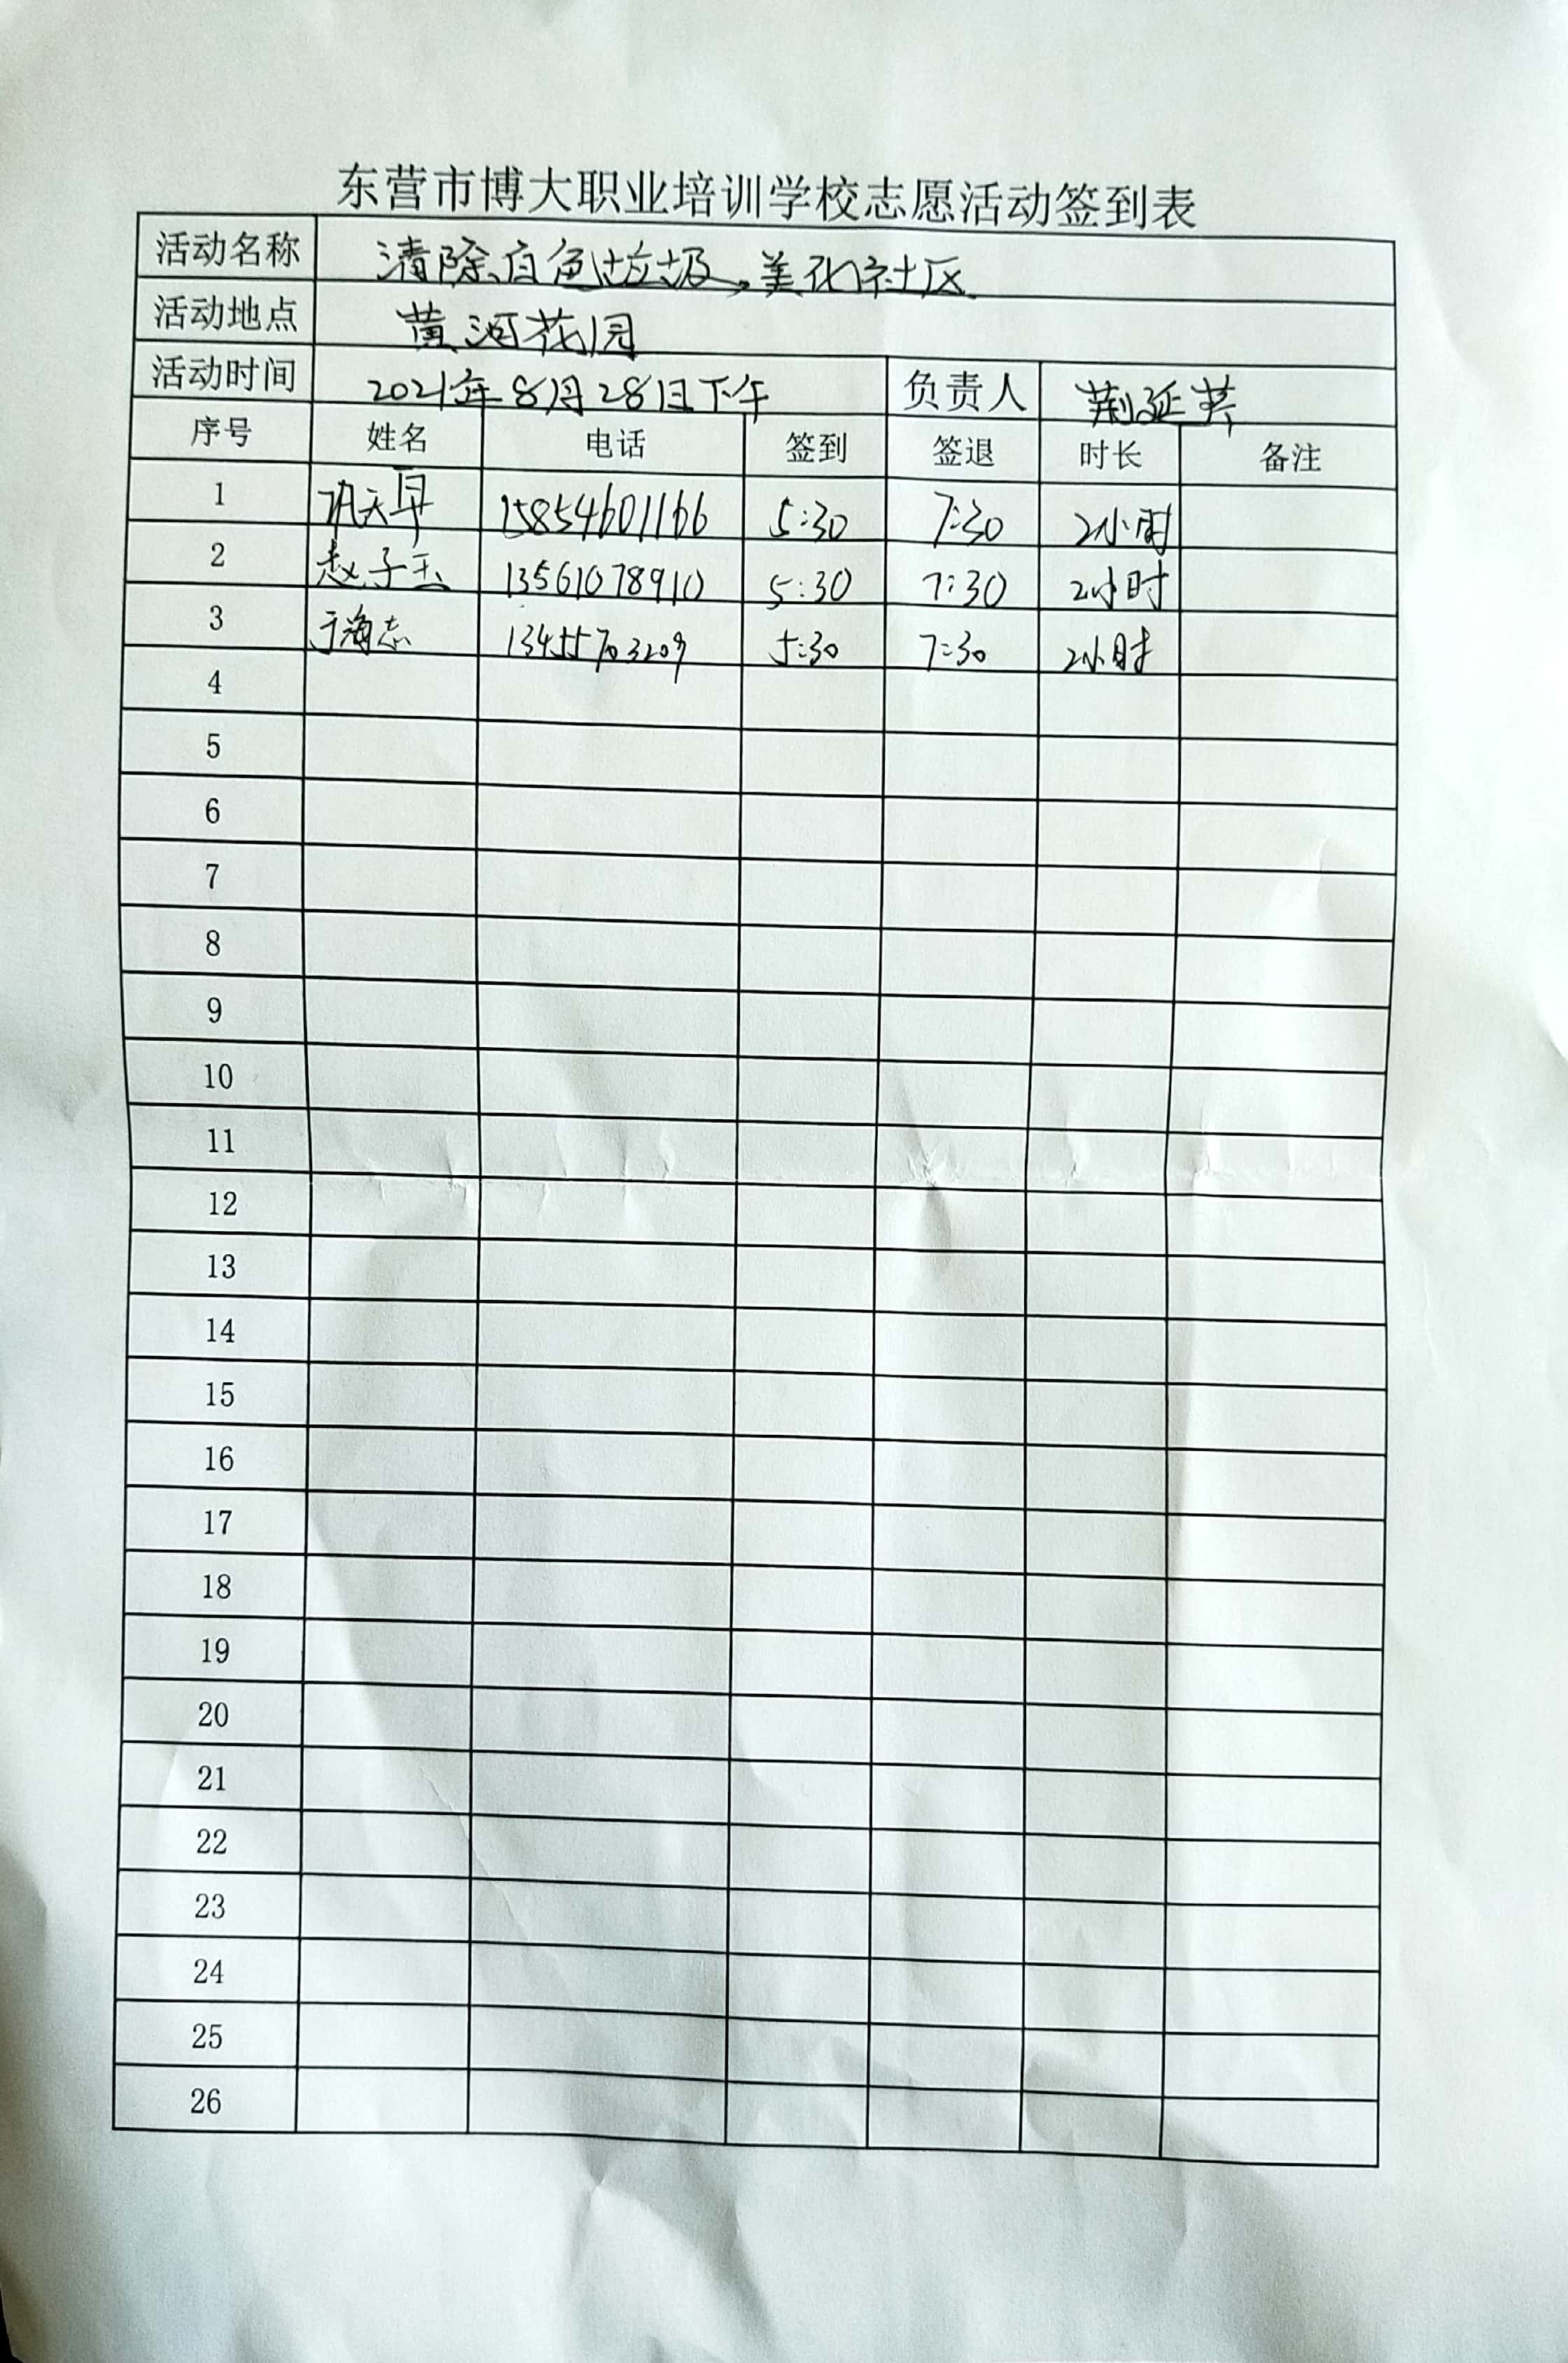 东营市博大职业培训学校志愿活动签到表
活动名称 清除白色垃圾,美化社区
活动地点 黄河花园
活动时间 2021年8月28日下午 负责人 荆延芬
序号 姓名 电话 签到 签退 时长 备注
1 巩天早 15854601166 5:30 7:30 2小时
2 赵子玉 13561078910 5:30 7:30 2小时
3 于海志 13455703209 5:30 7:30 2小时
4
5
6
7
8
9
10
11
12
13
14
15
16
17
18
19
20
21
22
23
24
25
26